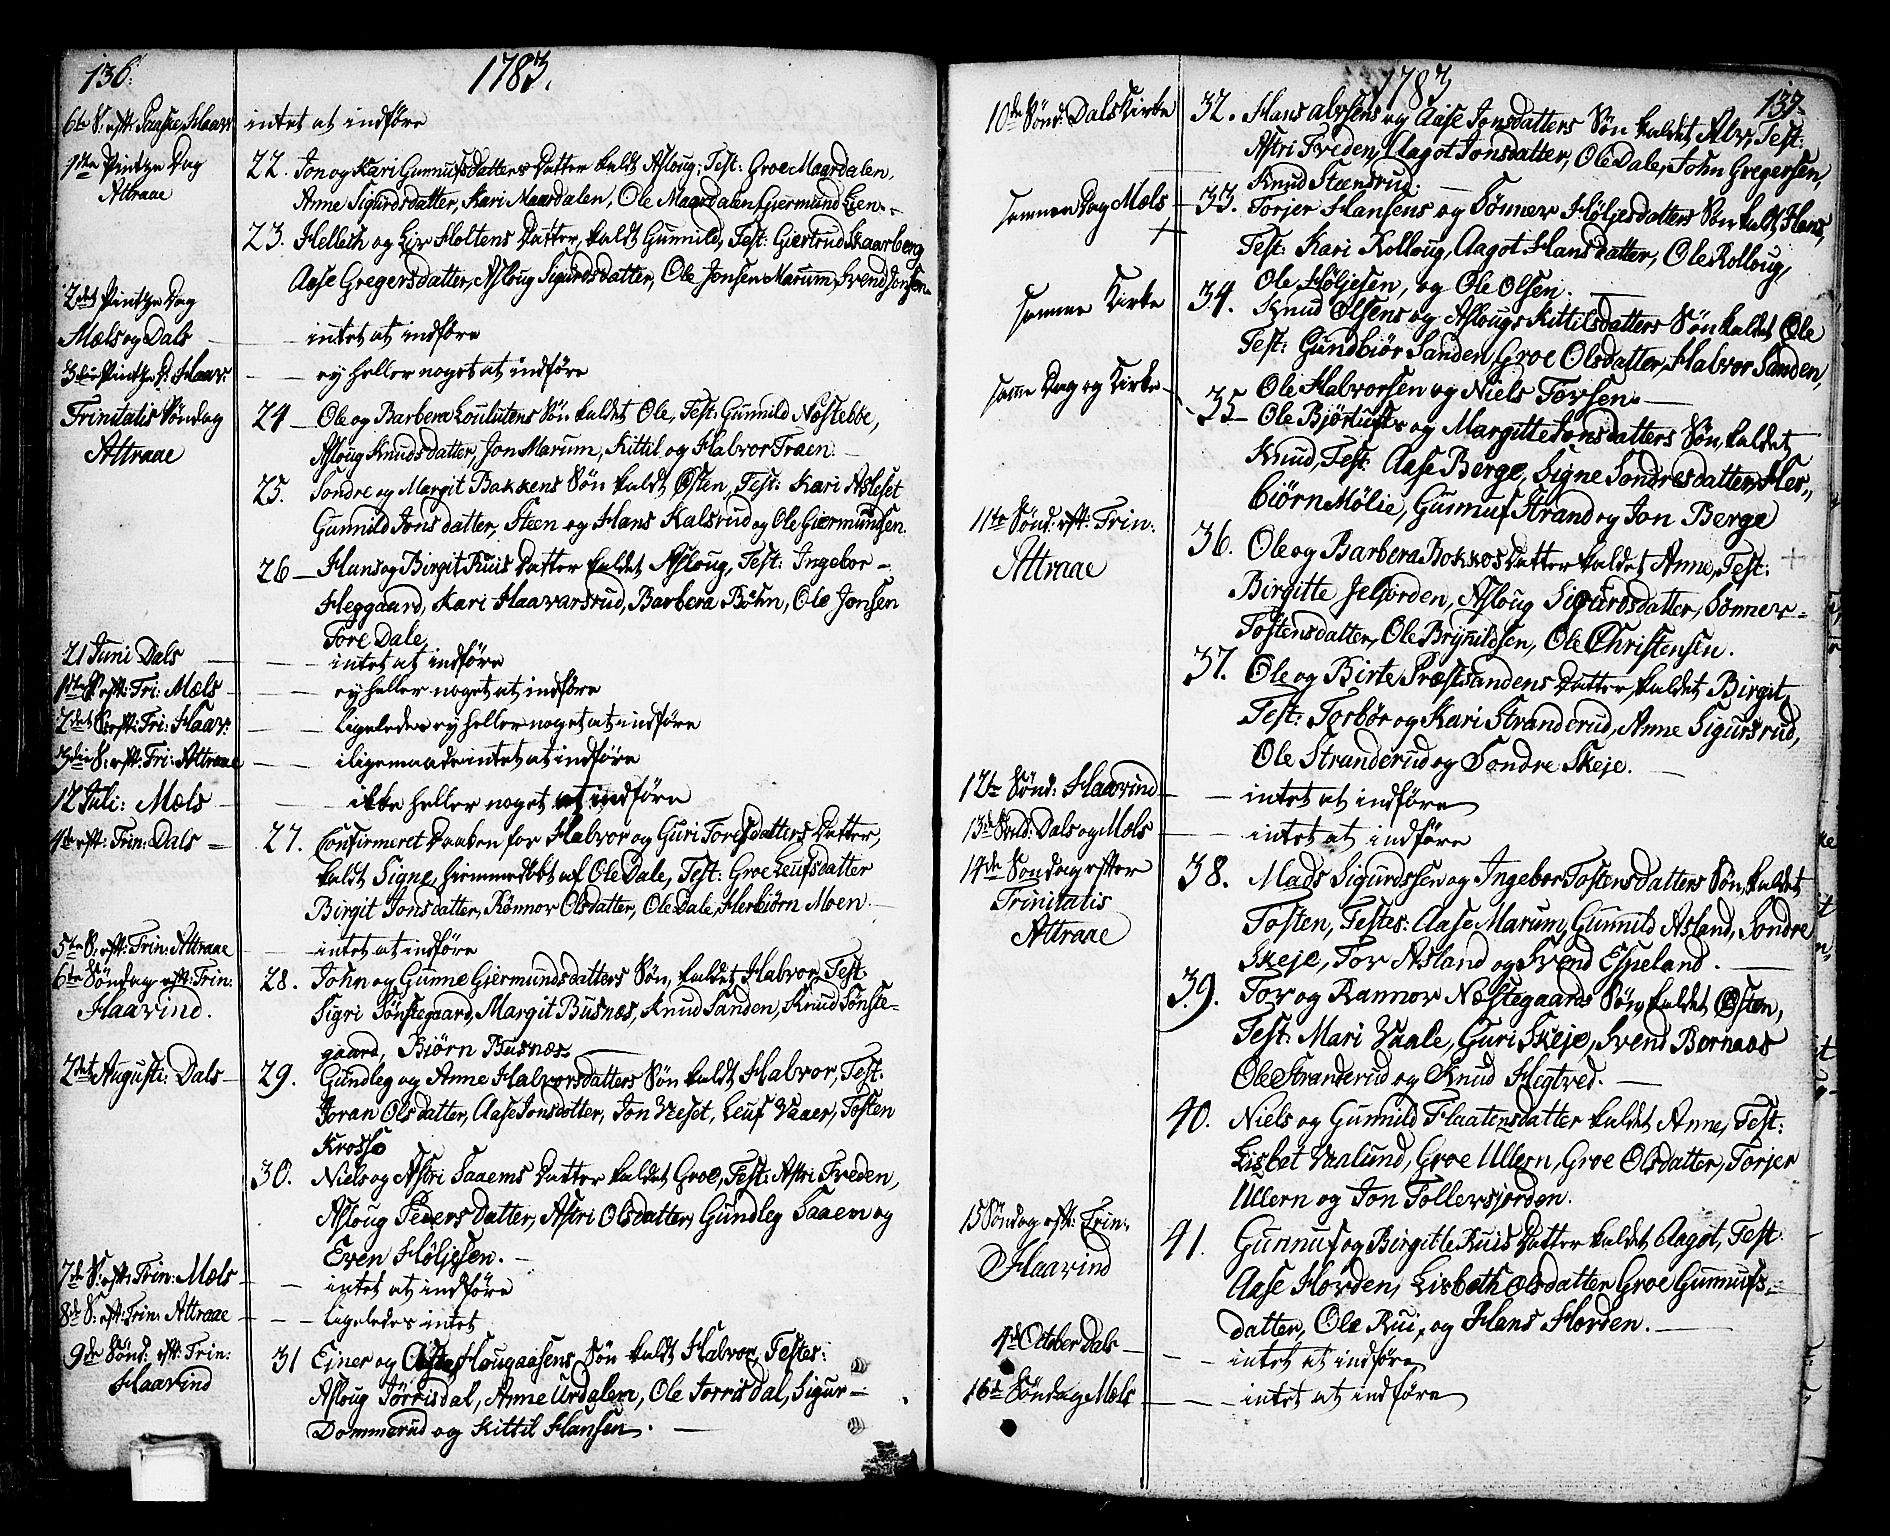 136.
1783.
6te S: eft: Paaske, Haav:
intet at indføre
1ste Pintze Dag
Attraae
22. Jon og Kari Gunnufsdatters Datter kaldt Asloug, Test: Groe Maardalen,
Anne Sigurdsdatter, Kari Maardalen, Ole Maardalen, Giermund Lien.
23. Hellech og Liv Holtens Datter, kaldt Gunnild, Test: Giertrud Skaarberg
Aase Gregersdatter, Asloug Sigurdsdatter, Ole Jonsen Marum, Svend Jonsen.
2det Pintze Dag
Mæls og Dals
intet at indføre
3die Pintze D: Haav:
ey heller noget at indføre
Trinitatis Søndag
Attraae
24 Ole og Barbera Loulutens Søn kaldet Ole, Test: Gunnild Næstebbe,
Asloug Knudsdatter, Jon Marum, Kittil og Halvor Traen.
25. Sondre og Margit Bakkens Søn kaldt Østen, Test: Kari Asleset
Gunnild Jonsdatter, Steen og Hans Kalsrud og Ole Giermundsen.
26 Hans og Birgit Ruis Datter kaldet Asloug, Test: Ingebor
Heggaard, Kari Haavarsrud, Barbera Bøhn, Ole Jonsen
Tore Dale.
21 Juni Dals
intet at indføre
1ste S: eft: Tri: Mæls
ey heller noget at indføre
2det S: eft: Tri: Haav:
ligeledes ey heller noget at indføre
3die S: eft: Tri: Attraae
iligemaade intet at indføre
12 Juli: Mæls
ikke heller noget at indføre
4te eft: Trin: Dals
27. Confirmeret Daaben for Halvor og Guri Toresdatters Datter,
kaldt Signe, hiemmedøbt af Ole Dale, Test: Groe Leufsdatter
Birgit Jonsdatter, Rønnov Olsdatter, Ole Dale, Herbiørn Moen.
5te S: eft: Trin: Attraae
intet at indføre
6te Søndag eft: Trin:
Haavind.
28. John og Gunne Giermundsdatters Søn, kaldet Halvor, Test:
Sigri Sønstegaard, Margit Busnæs, Knud Sanden, Knud Sønste-
gaard, Biørn Busnæs.
2det Augusti: Dals
29. Gundleg og Anne Halvorsdatters Søn kaldt Halvor, Test:
Joran Olsdatter, Aase Jonsdatter, Jon Veset, Leuf Vaaer, Tosten
Krosse
30. Niels og Astri Saaems Datter kaldet Groe, Test: Astri Freden,
Asloug Pedersdatter, Astri Olsdatter, Gundleg Saaem og
Even Høljesen.
7de S: eft: Trin: Mæls
intet at indføre
8de S: eft: Trin: Attraae
ligeledes intet
9de Sønd: eft: Trin:
Haavind
31 Ejner og Haugaasens Søn kaldt Halvor, Testes:
Asloug Jørrisdal, Anne Urdalen, Ole Jorrisdal, Sigur
Dommerud og Kittil Hansen.
1783
137.
10de Sønd: Dals Kirke
32. Hans Alvsens og Aase Jonsdatters Søn kaldet Alv, Test:
Astri Freden, Aagot Jonsdatter, Ole Dale, John Gregersen,
Knud Stænsrud.
samme Dag Mæls
33. Torjer Hansens og Sønnev Høljesdatters Søn kaldt Hans,
Test: Kari Kolloug, Aagot Hansdatter, Ole Kolloug,
Ole Høljesen, og Ole Olsen.
samme Kirke
34. Knud Olsens og Aslougs Kittilsdatters Søn kaldet Ole
Test: Gundbiør Sanden, Groe Olsdatter, Halvor Sanden,
Ole Halvorsen og Niels Torsen.
samme Dag og Kirke
35 Ole Bjørtufts og Margitte Jonsdatters Søn, kaldet
Knud, Test: Aase Berge, Signe Sondresdatter, Her-
biørn Mølie, Gunnuf Strand og Jon Berge
11te Sønd: eft: Trin:
Attraae
36. Ole og Barbera Bokkos Datter kaldet Anne, Test:
Birgitte Jelforden, Asloug Sigurdsdatter, Sønnev
Tostensdatter, Ole Brynildsen, Ole Christensen.
37. Ole og Birte Præstsandens Datter, kaldet Birgit,
Test: Torbør og Kari Stranderud, Anne Sigursrud,
Ole Stranderud og Sondre Skeje.
12te Sønd: Haavind
intet at indføre
13de Sønd: Dals og Mæls
intet at indføre
14de Søndag efter
Trinitatis
Attraae
38. Mads Sigurdssen og Ingebor Tostensdatters Søn, kaldet
Tosten, Testes: Aase Marum, Gunnild Asland, Sondre
Skeje, Tor Asland og Svend Espeland.
39. Tor og Rannov Næstegaards Søn, kaldet Østen,
Test: Mari Vaale, Guri Skeje, Svend Bernaas
Ole Stranderud og Knud Hegtved.
40. Niels og Gunnild Flaatens datter kaldet Anne, Test:
Lisbet Vaalund, Groe Ullern, Groe Olsdatter, Torjer
Ullern og Jon Tollefsjorden.
15 Søndag eft: Trin:
Haavind
41. Gunnuf og Birgitte Ruis Datter kaldet Aagot, Test:
Aase Horden, Lisbeth Olsdatter, Groe Gunnufs-
datter, Ole Rui, og Hans Horden.
4de October Dals
intet at indføre
16te Søndag Mæls
intet at indføre